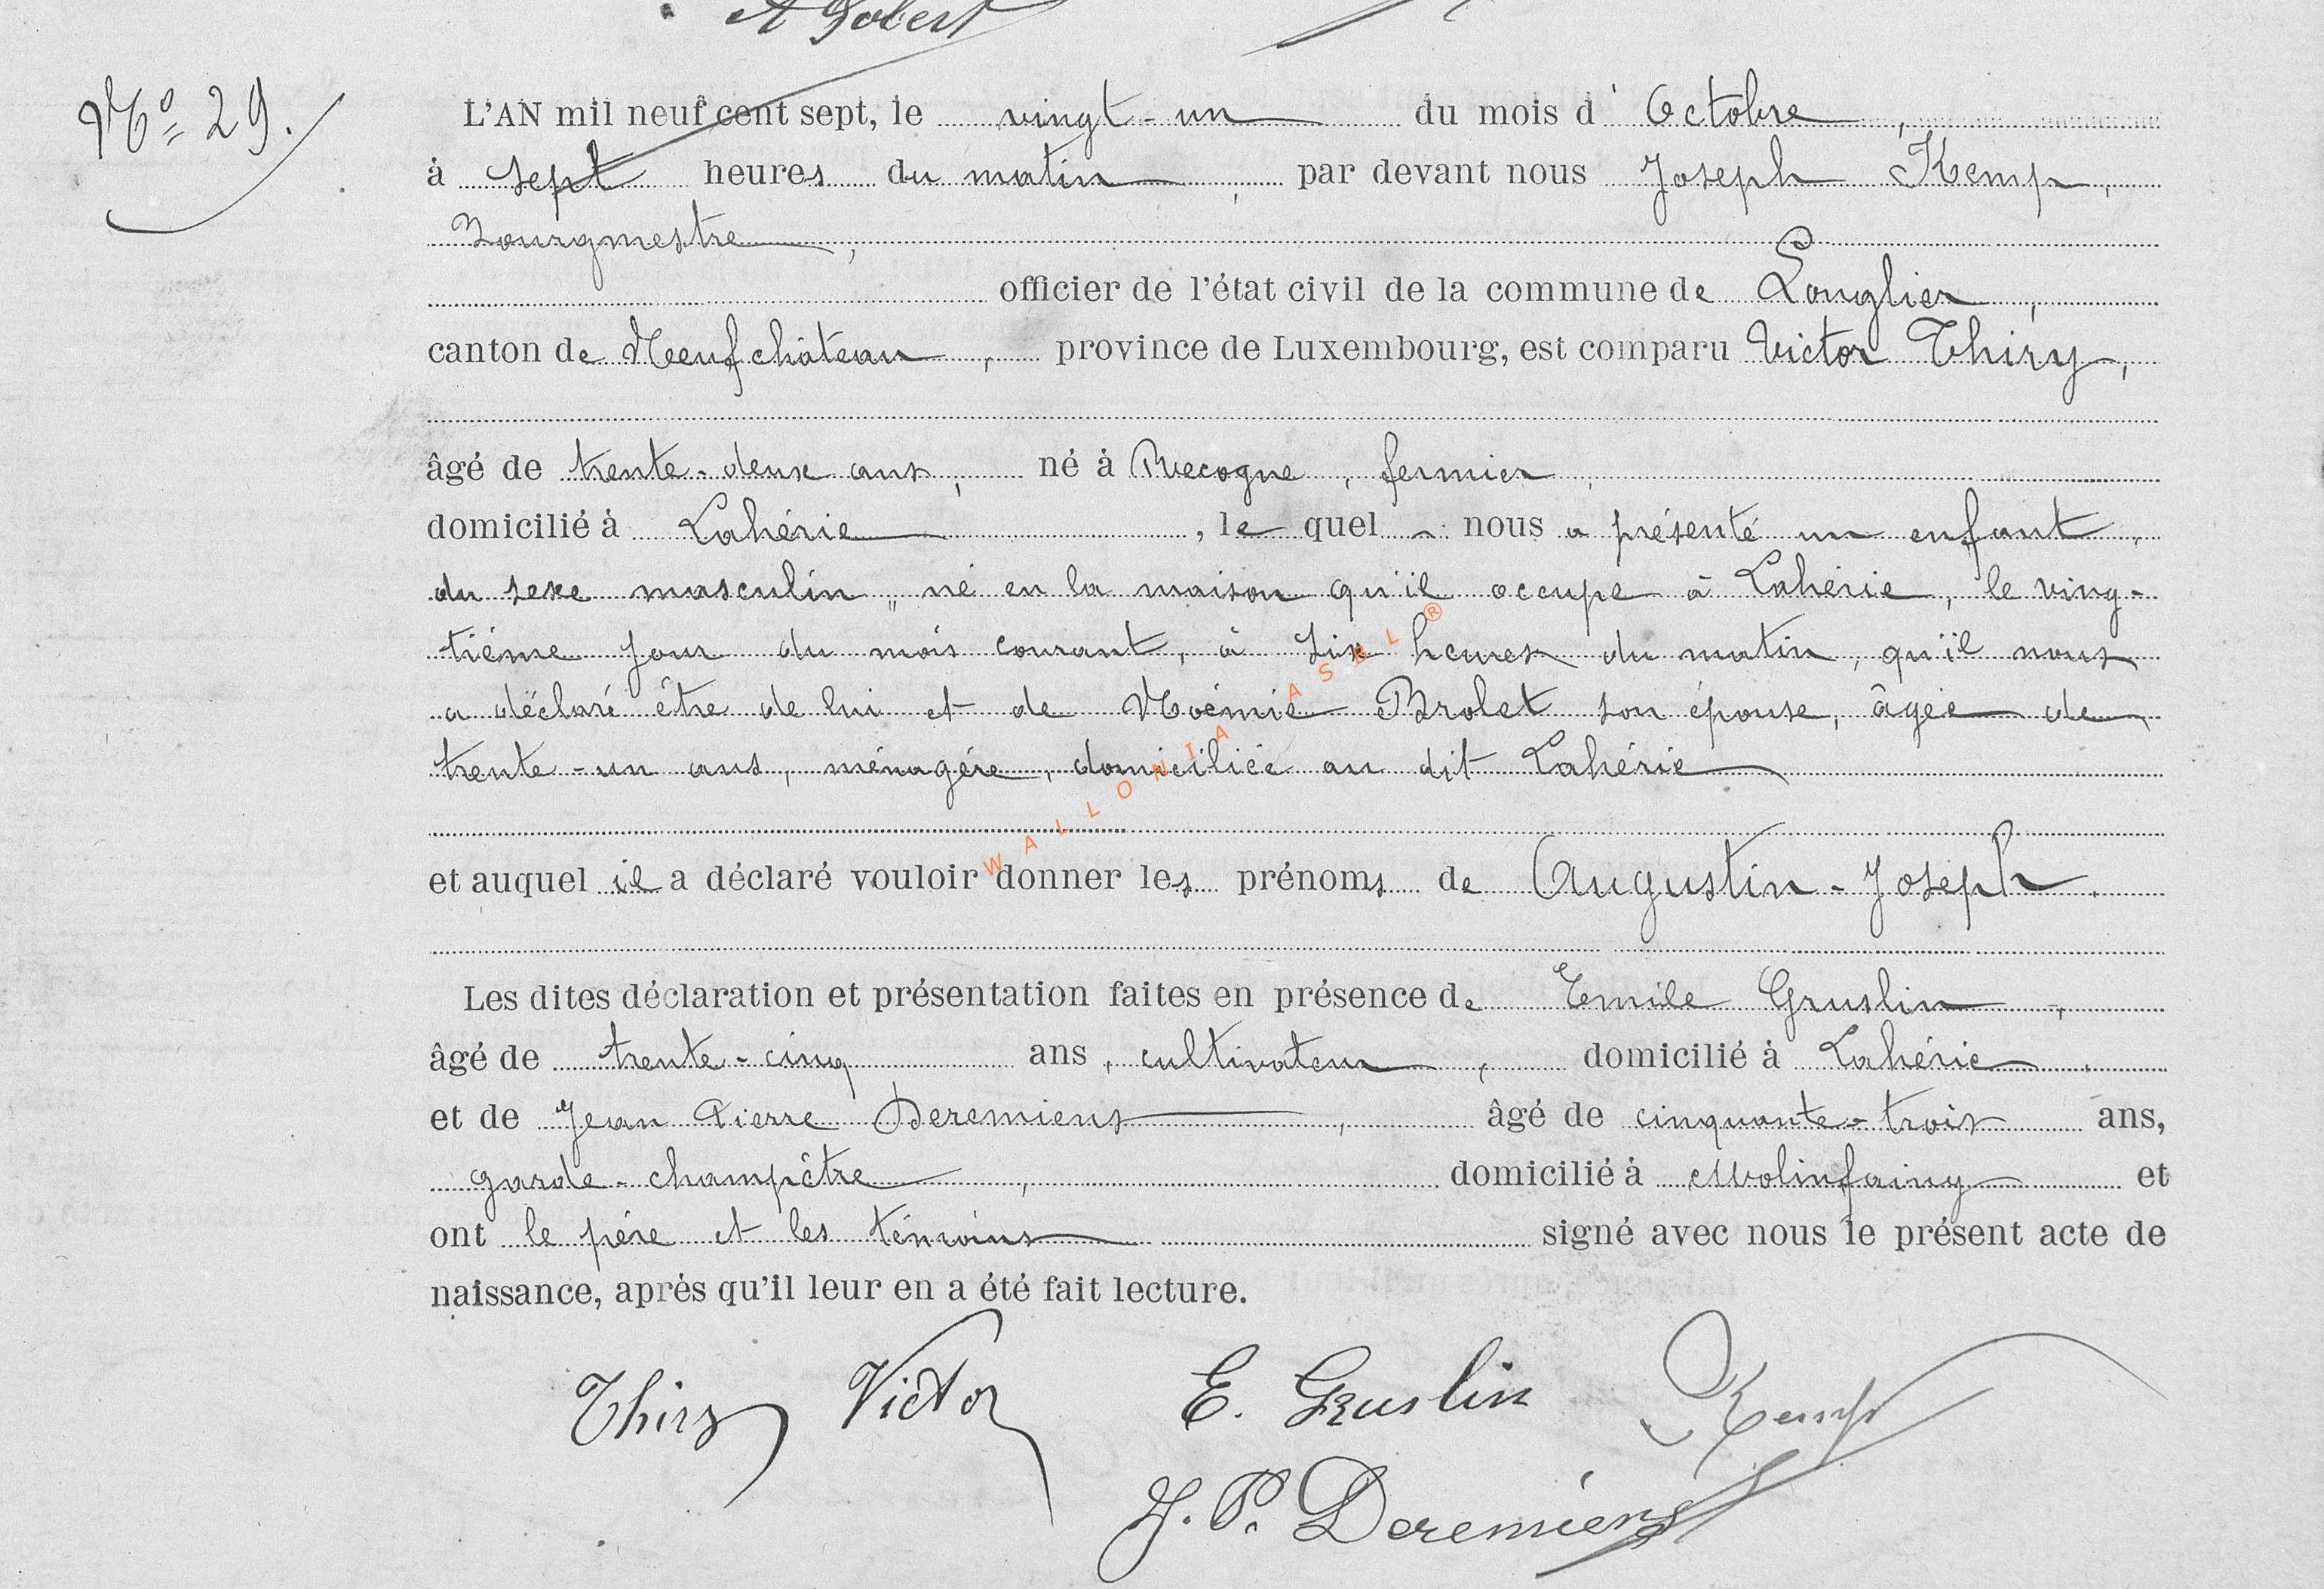 A Gobert
Nº 29.
L'AN mil neuf cent sept, le vingt-un du mois d'Octobre,
à sept heures du matin, par devant nous Joseph Kemp,
Bourgmestre,
officier de l'état civil de la commune de Longlier,
canton de Neufchâteau, province de Luxembourg, est comparu Victor Thiry,
âgé de trente-deux ans, né à Recogne, fermier,
domicilié à Lahérie, le quel nous a présenté un enfant,
du sexe masculin, né en la maison qu'il occupe à Lahérie, le ving-
tième jour du mois courant, à six heures du matin, qu'il nous
a déclaré être de lui et de Noémie Brolet son épouse, âgée de
trente-un ans, ménagère, domiciliée au dit Lahérie
WALLONIA ASBL ®
et auquel il a déclaré vouloir donner les prénoms de Augustin-Joseph.
Les dites déclaration et présentation faites en présence de Emile Gruslin,
âgé de trente-cinq ans, cultivateur, domicilié à Lahérie,
et de Jean Pierre Deremiens, âgé de cinquante-trois ans,
garde-champêtre, domicilié à Molinfaing et
ont le père et les témoins signé avec nous le présent acte de
naissance, après qu'il leur en a été fait lecture.
Thiry Victor E. Gruslin Kemp
J. P. Deremiens